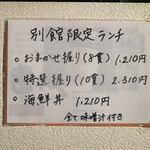 別館限定ランチ
○ おまかせ握り(8貫) 1.210円
○ 特選握り(10貫) 2.310円
○ 海鮮丼 1.210円
全て味噌汁付き